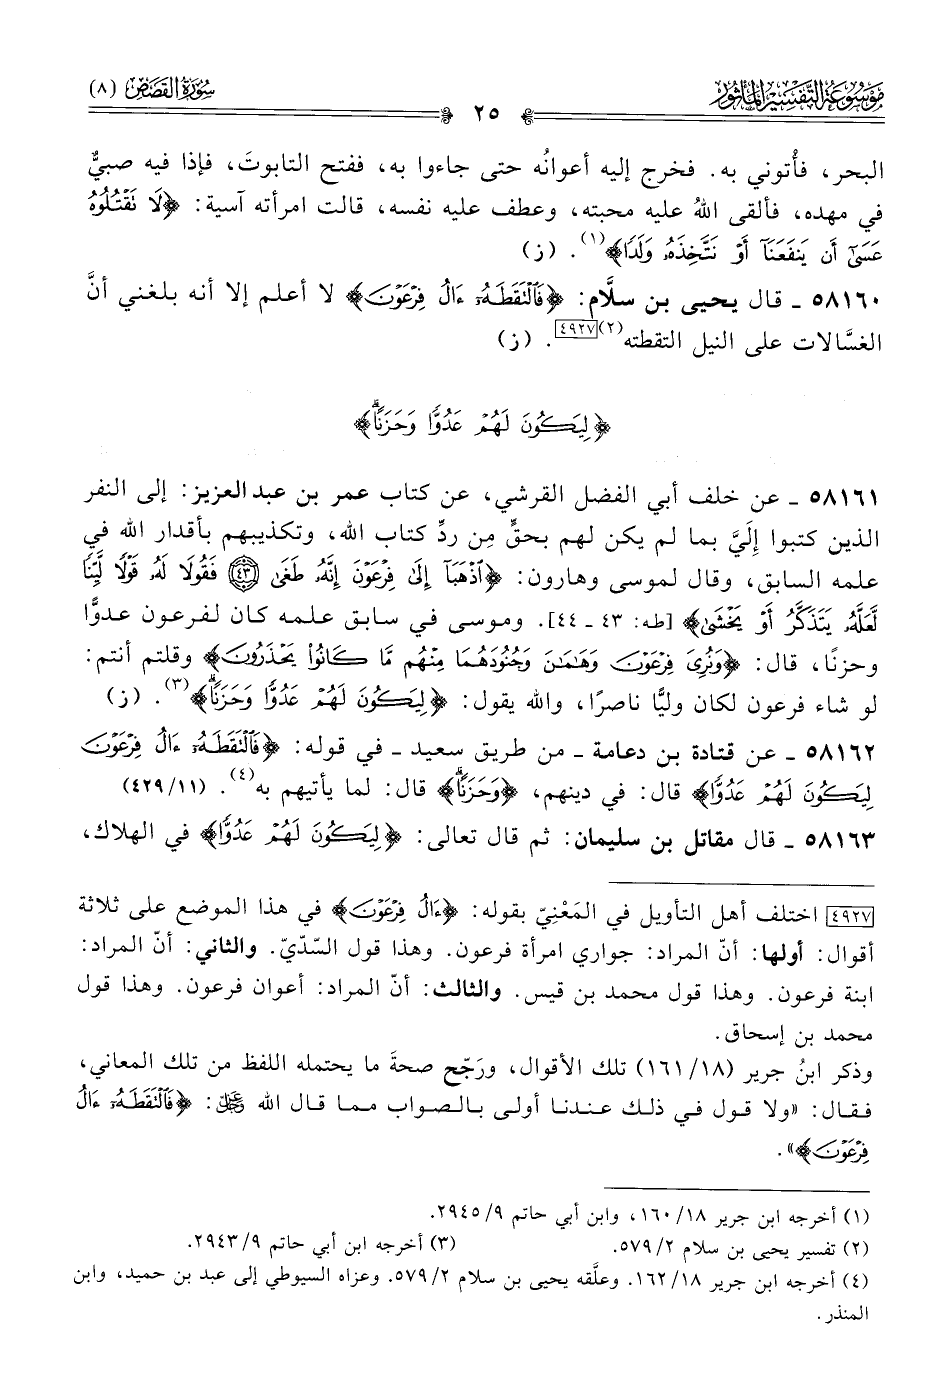 موسوعة التفسير المأثور
٢٥
سورة القصص (٨)
البحر، فأْتوني به. فخرج إليه أعوانُه حتى جاءوا به، ففتح التابوتَ، فإذا فيه صبيٌّ
في مهده، فألقى اللهُ عليه محبته، وعطف عليه نفسه، قالت امرأته آسية: ﴿لَا نَقْتُلُوهُ
عَسَىٰٓ أَن يَنفَعَنَآ أَوْ نَتَّخِذَهُۥ وَلَدًا﴾(١). (ز)
٥٨١٦٠ ـ قال يحيى بن سلَّام: ﴿فَٱلْتَقَطَهُۥٓ ءَالُ فِرْعَوْنَ﴾ لا أعلم إلا أنه بلغني أنَّ
الغسَّالات على النيل التقطته(٢)[٤٩٢٧]. (ز)
﴿لِيَكُونَ لَهُمْ عَدُوًّا وَحَزَنًاۗ﴾
٥٨١٦١ ـ عن خلف أبي الفضل القرشي، عن كتاب عمر بن عبد العزيز: إلى النفر
الذين كتبوا إلَيَّ بما لم يكن لهم بحقٍّ مِن ردِّ كتاب الله، وتكذيبهم بأقدار الله في
علمه السابق، وقال لموسى وهارون: ﴿ٱذْهَبَآ إِلَىٰ فِرْعَوْنَ إِنَّهُۥ طَغَىٰ ﴿٤٣﴾ فَقُولَا لَهُۥ قَوْلًا لَّيِّنًا
لَّعَلَّهُۥ يَتَذَكَّرُ أَوْ يَخْشَىٰ﴾ [طه: ٤٣ ـ ٤٤]. وموسى في سابق علمه كان لفرعون عدوًّا
وحزنًا، قال: ﴿وَنُرِىَ فِرْعَوْنَ وَهَٰمَٰنَ وَجُنُودَهُمَا مِنْهُم مَّا كَانُوا۟ يَحْذَرُونَ﴾ وقلتم أنتم:
لو شاء فرعون لكان وليًّا ناصرًا، والله يقول: ﴿لِيَكُونَ لَهُمْ عَدُوًّا وَحَزَنًاۗ﴾(٣). (ز)
٥٨١٦٢ ـ عن قتادة بن دعامة ـ من طريق سعيد ـ في قوله: ﴿فَٱلْتَقَطَهُۥٓ ءَالُ فِرْعَوْنَ
لِيَكُونَ لَهُمْ عَدُوًّا﴾ قال: في دينهم، ﴿وَحَزَنًاۗ﴾ قال: لما يأتيهم به(٤). (٤٢٩/١١)
٥٨١٦٣ ـ قال مقاتل بن سليمان: ثم قال تعالى: ﴿لِيَكُونَ لَهُمْ عَدُوًّا﴾ في الهلاك،
[٤٩٢٧] اختلف أهل التأويل في المَعْنِيّ بقوله: ﴿ءَالُ فِرْعَوْنَ﴾ في هذا الموضع على ثلاثة
أقوال: أولها: أنّ المراد: جواري امرأة فرعون. وهذا قول السّدّيّ. والثاني: أنّ المراد:
ابنة فرعون. وهذا قول محمد بن قيس. والثالث: أنّ المراد: أعوان فرعون. وهذا قول
محمد بن إسحاق.
وذكر ابنُ جرير (١٦١/١٨) تلك الأقوال، ورَجّح صحةَ ما يحتمله اللفظ من تلك المعاني،
فقال: «ولا قول في ذلك عندنا أولى بالصواب مما قال الله ﷿: ﴿فَٱلْتَقَطَهُۥٓ ءَالُ
فِرْعَوْنَ﴾».
(١) أخرجه ابن جرير ١٦٠/١٨، وابن أبي حاتم ٢٩٤٥/٩.
(٢) تفسير يحيى بن سلام ٥٧٩/٢. (٣) أخرجه ابن أبي حاتم ٢٩٤٣/٩.
(٤) أخرجه ابن جرير ١٦٢/١٨. وعلَّقه يحيى بن سلام ٥٧٩/٢. وعزاه السيوطي إلى عبد بن حميد، وابن
المنذر.